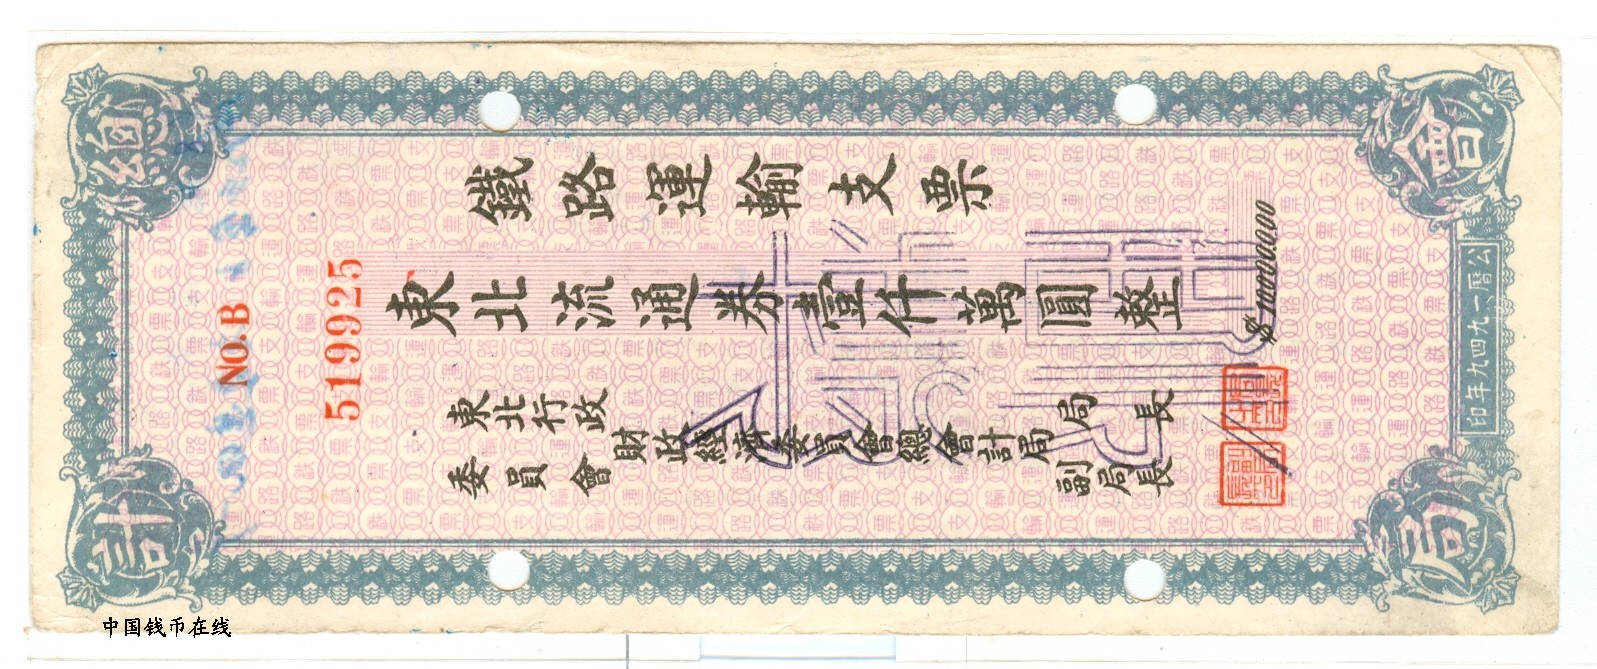 總
會
計
局
鐵路運輸支票
東北流通券壹仟萬圓整
$10000000.00
NO.B
5199925
東北行政
委員會
財政經濟委員會總會計局
局長
副局長
公曆一九四九年印
中国钱币在线